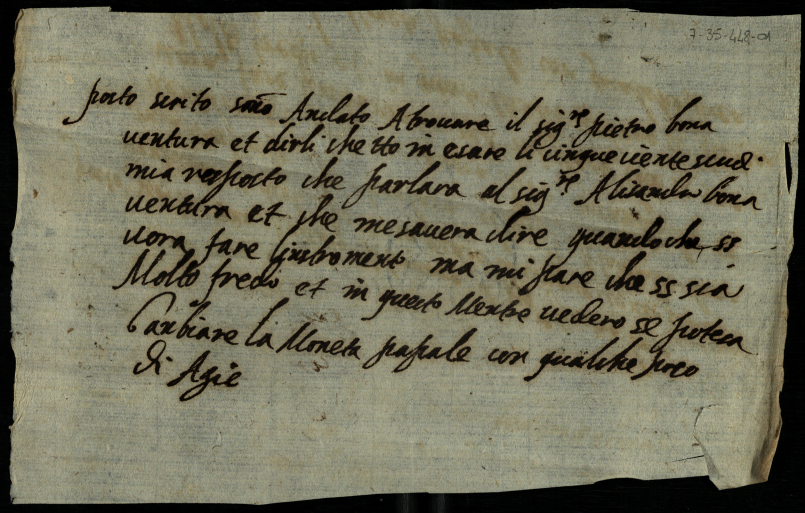 7-35-448-01
posto scrito sono Andato Atrovare il sig.re pietro bona
ventura et dirli che tto in esare li cinque ciente scudi
mia resposto che parlara al sig.re Alisandro bona
ventura et che me savera dire quando che ss
vora fare instromento ma mi pare che ss sia
Molto fredo et in questo Mentre vedero se poteca
Canbiare la Moneta papale con qualche poco
di Agie